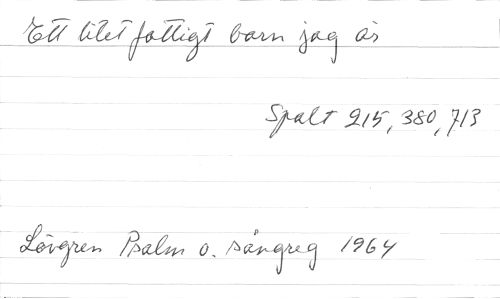 Ett litet fattigt barn jag är
Spalt 215, 380, 713
Lövgren Psalm o. sångreg 1964